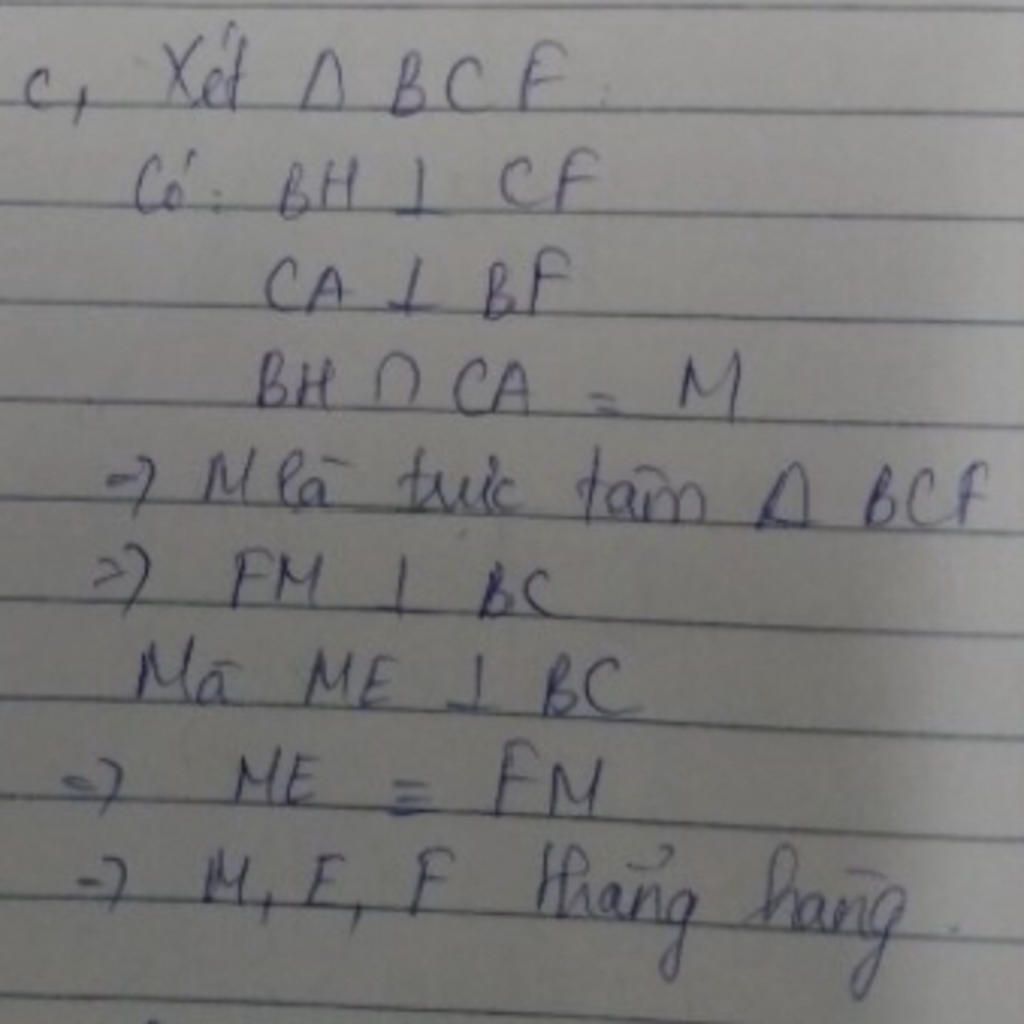 c, Xét Δ BCF.
Có: BH ⊥ CF
CA ⊥ BF
BH ∩ CA = M
=> M là trực tâm Δ BCF
=> FM ⊥ BC
Mà ME ⊥ BC
=> ME ≡ FM
=> M, E, F thẳng hàng.